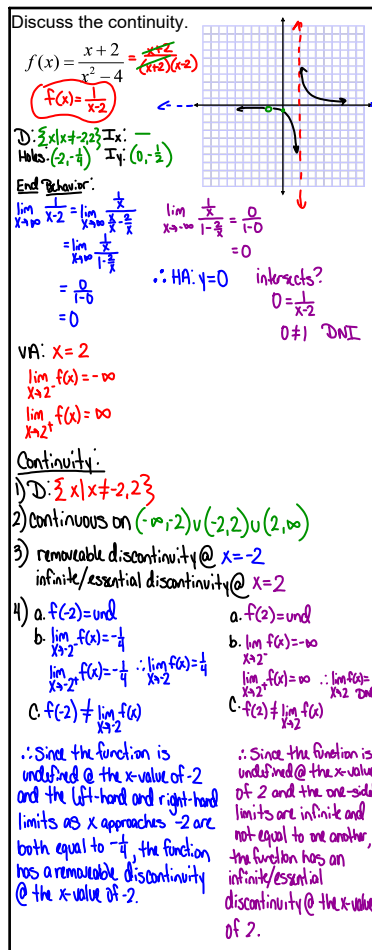 Discuss the continuity.
f(x) = (x+2)/(x²-4) = (x+2)/((x+2)(x-2))
f(x) = 1/(x-2)
D: {x|x≠-2,2} Ix: —
Holes: (-2,-1/4) Iy: (0,-1/2)
End Behavior:
lim x→∞ 1/(x-2) = lim x→∞ (1/x)/(x/x - 2/x)
= lim x→∞ (1/x)/(1-2/x)
= 0/(1-0)
= 0
lim x→-∞ (1/x)/(1-2/x) = 0/(1-0)
= 0
∴ HA: y=0
intersects?
0 = 1/(x-2)
0≠1 DNI
VA: x=2
lim x→2⁻ f(x) = -∞
lim x→2⁺ f(x) = ∞
Continuity:
1) D: {x|x≠-2,2}
2) continuous on (-∞,-2)∪(-2,2)∪(2,∞)
3) removeable discontinuity @ x=-2
infinite/essential discontinuity @ x=2
4) a. f(-2)=und
b. lim x→-2⁻ f(x) = -1/4
lim x→-2⁺ f(x) = -1/4 ∴ lim x→-2 f(x) = 1/4
c. f(-2) ≠ lim x→-2 f(x)
∴ Since the function is
undefined @ the x-value of -2
and the left-hand and right-hand
limits as x approaches -2 are
both equal to -1/4, the function
has a removeable discontinuity
@ the x-value of -2.
a. f(2)=und
b. lim x→2⁻ f(x) = -∞
lim x→2⁺ f(x) = ∞ ∴ lim x→2 f(x) = DNE
c. f(2) ≠ lim x→2 f(x)
∴ Since the function is
undefined @ the x-value
of 2 and the one-side
limits are infinite and
not equal to one another,
the function has an
infinite/essential
discontinuity @ the x-value
of 2.